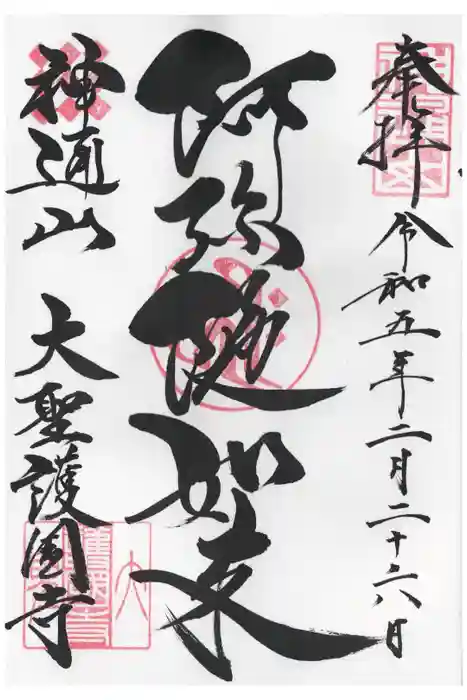 奉拝
令和五年二月二十六日
阿弥陀如来
神通山 大聖護国寺